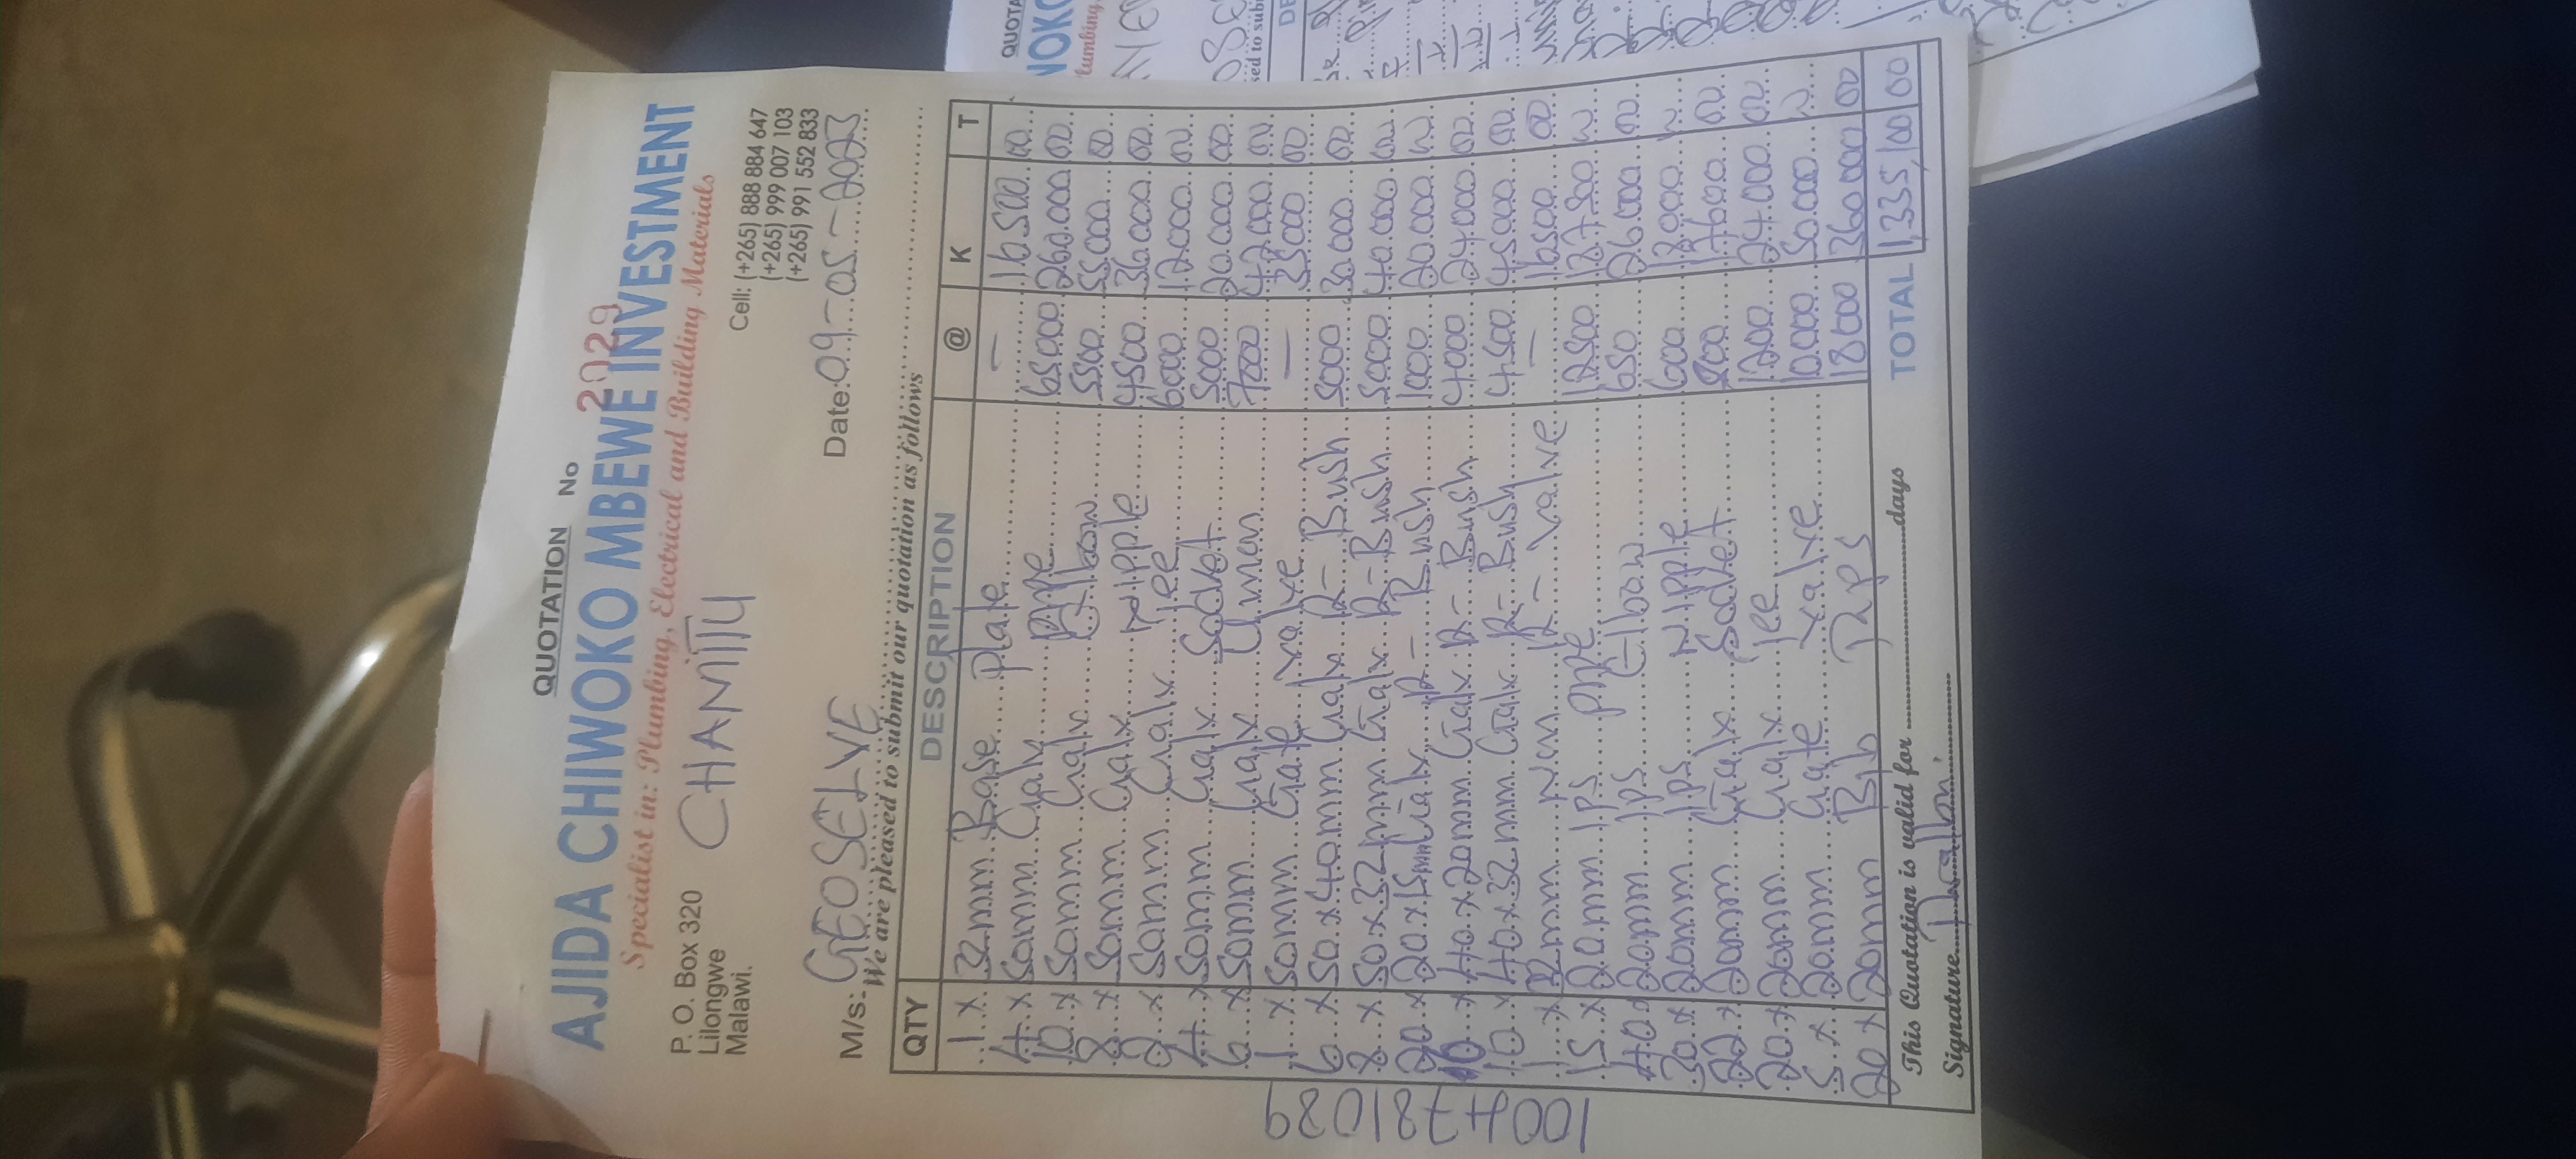 QUOTATION No 2029
AJIDA CHIWOKO MBEWE INVESTMENT
Specialist in: Plumbing, Electrical and Building Materials
P. O. Box 320
Lilongwe
Malawi.
CHAMITU
Cell: (+265) 888 884 647
(+265) 999 007 103
(+265) 991 552 833
M/s: GEOSELVE
Date: 09-05-2023
We are pleased to submit our quotation as follows
QTY DESCRIPTION @ K T
1 x 32mm Base plate — 16500 00
4 x 50mm Galv pipe 65000 260.000 00
10 x 50mm Galv Elbow 5500 55000 00
8 x 50mm Galv Nipple 4500 36000 00
2 x 50mm Galv Tee 6000 12000 00
4 x 50mm Galv Socket 5000 20.000 00
6 x 50mm Galv Union 7000 42000 00
1 x 50mm Gate valve — 35000 00
6 x 50x40mm Galv R-Bush 5000 30.000 00
8 x 50x32mm Galv R-Bush 5000 40.000 00
20 x 20x15mm Galv R-Bush 1000 20.000 00
x 40x20mm Galv R-Bush 4000 24000 00
10 x 40x32mm Galv R-Bush 4500 45000 00
1 x 32mm Non R-Valve — 16500 00
15 x 20mm Ips pipe 12500 187500 00
40 x 20mm Ips Elbow 650 26.000 00
30 x 20mm Ips Nipple 600 18000 00
22 x 20mm Galv Socket 800 17600 00
20 x 20mm Galv Tee 1200 24.000 00
5 x 20mm Gate valve 10.000 50.000 00
20 x 20mm Bib Taps 18000 360000 00
This Quotation is valid for days
TOTAL 1,335,100 00
Signature
1004781089
QUOTA
lumbing,
sed to sub
DE